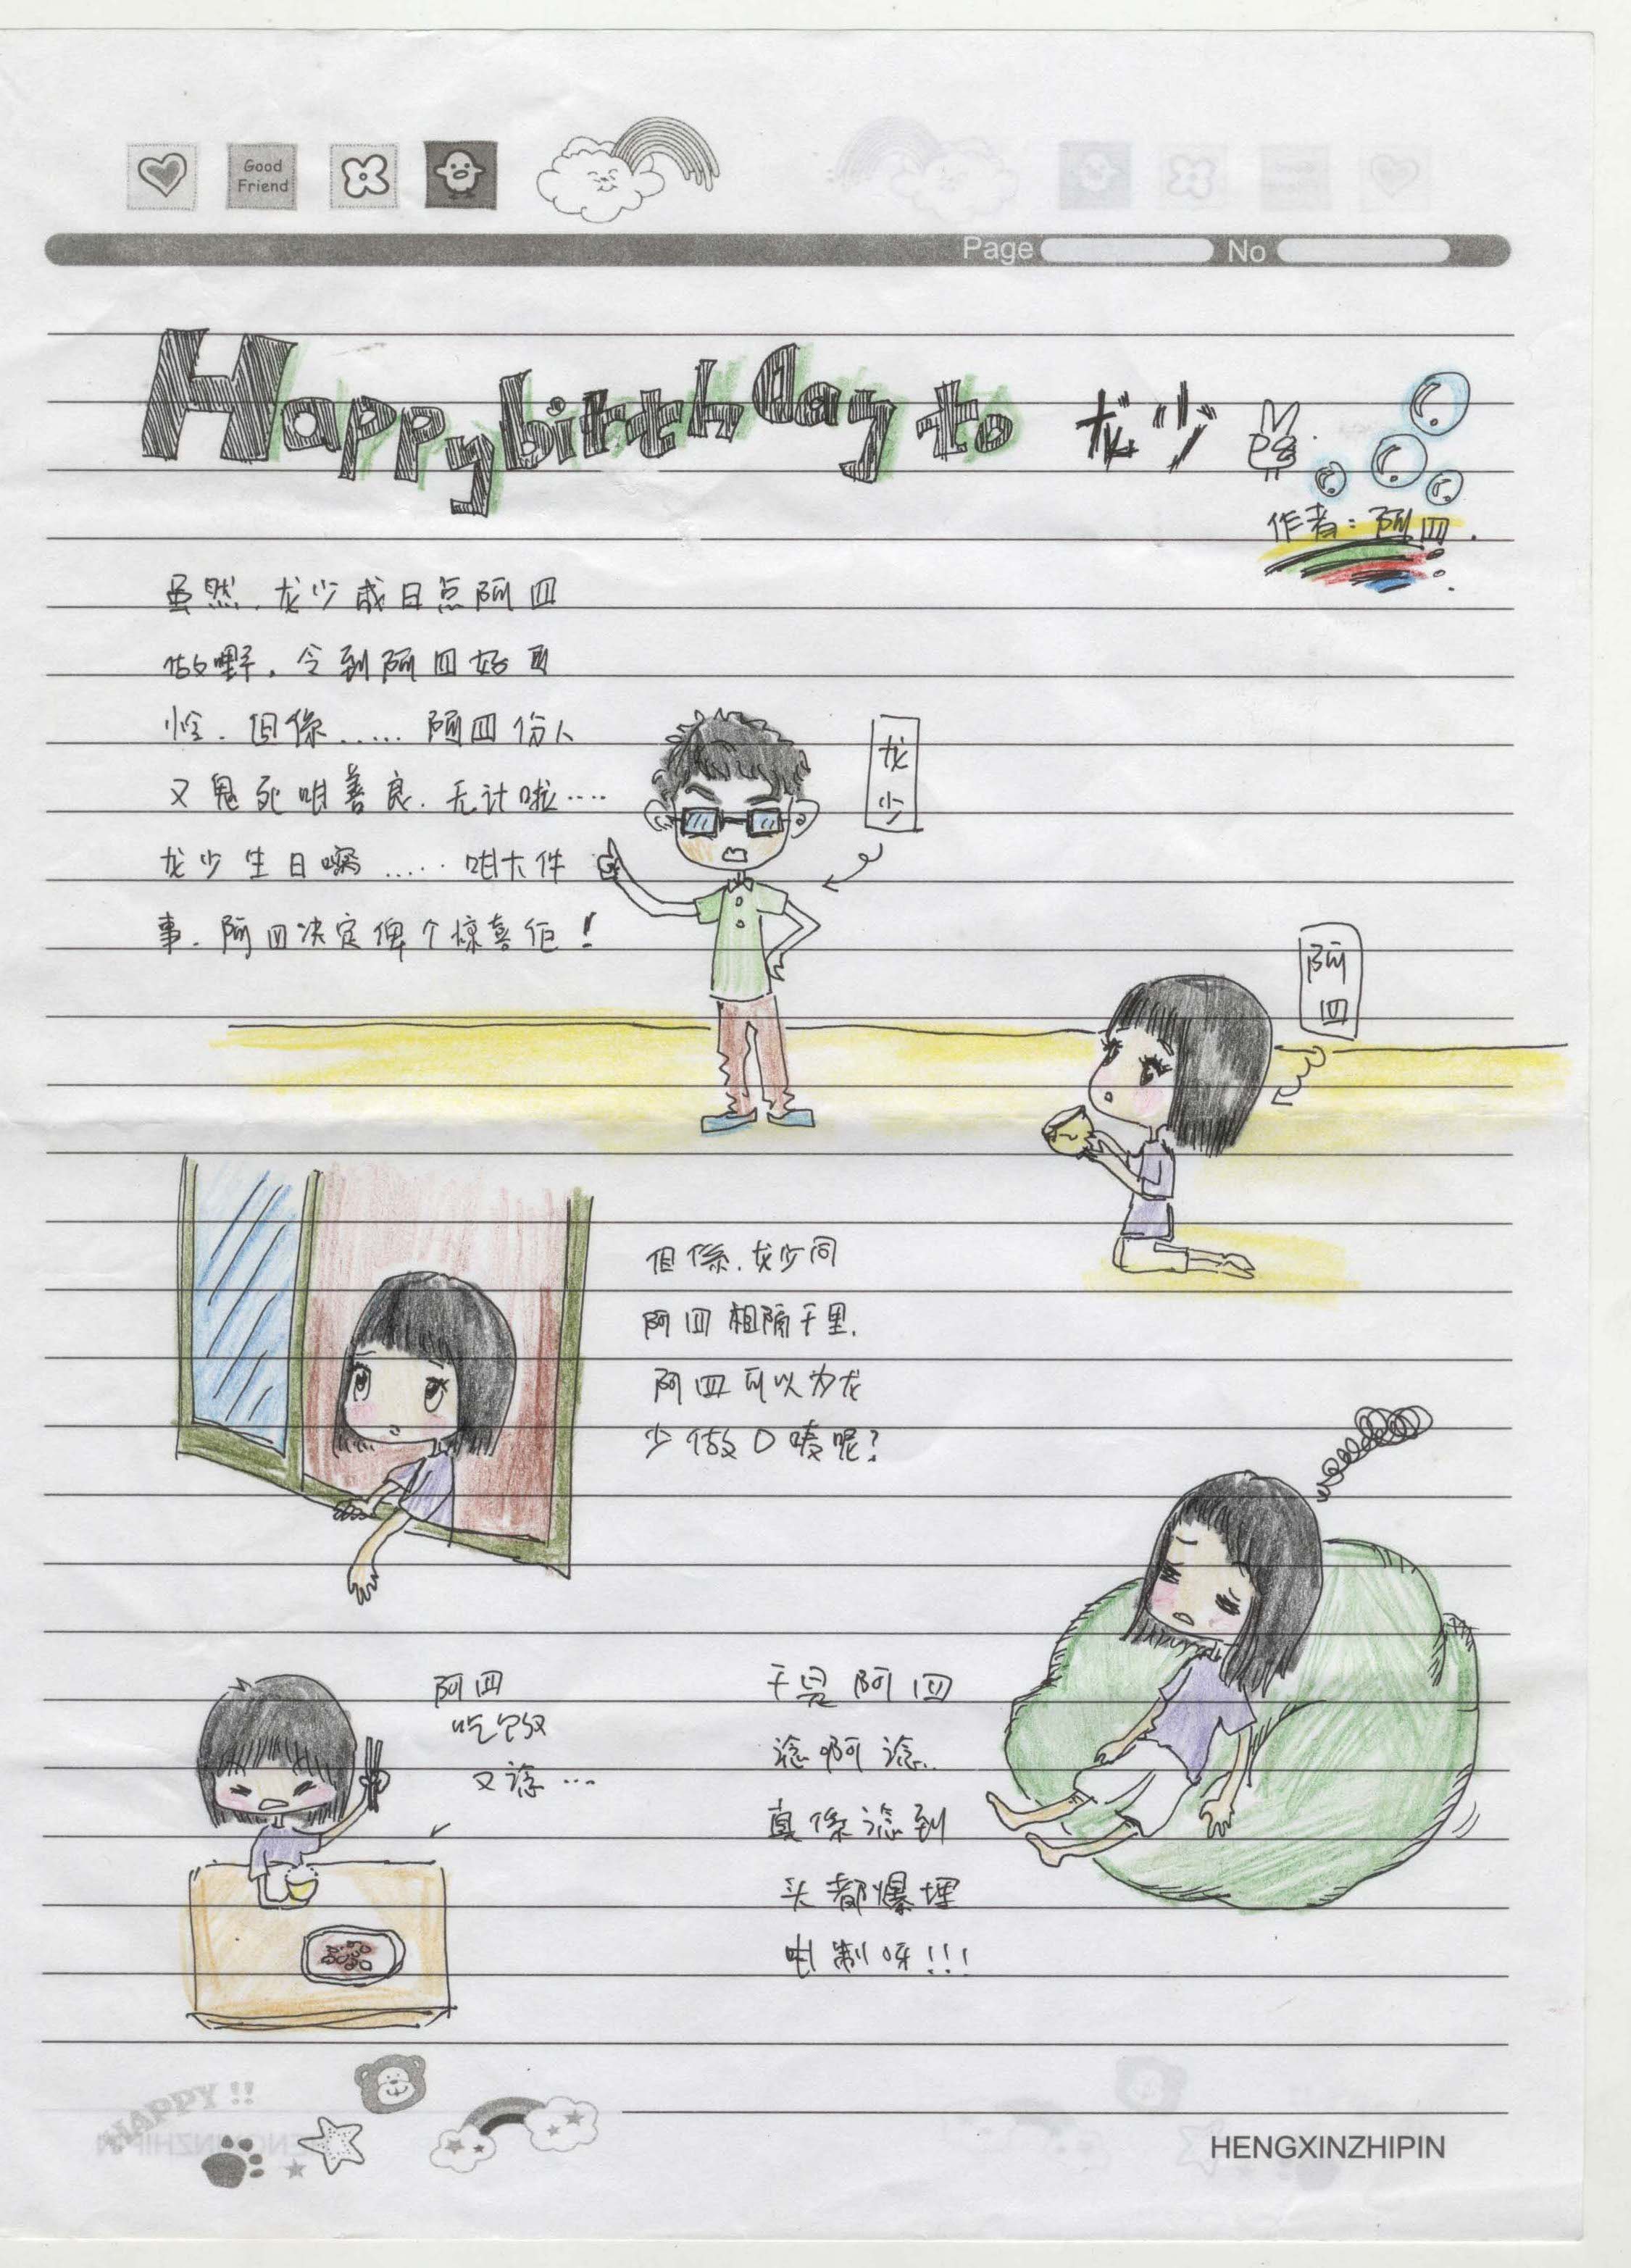 Good
Friend
Page No
Happy birthday to 龙少
作者：阿四.
虽然，龙少成日点阿四
做嘢，令到阿四好可
怜．但係……阿四份人
又鬼死咁善良．无计啦……
龙少生日嘛……咁大件
事．阿四决定俾个惊喜佢！
龙少
阿四
但係．龙少同
阿四相隔千里．
阿四可以为龙
少做D唛呢？
阿四
吃饭
又谂…
于是阿四
谂啊谂..
真係谂到
头都爆埋
制呀!!!
HAPPY !!
HENGXINZHIPIN